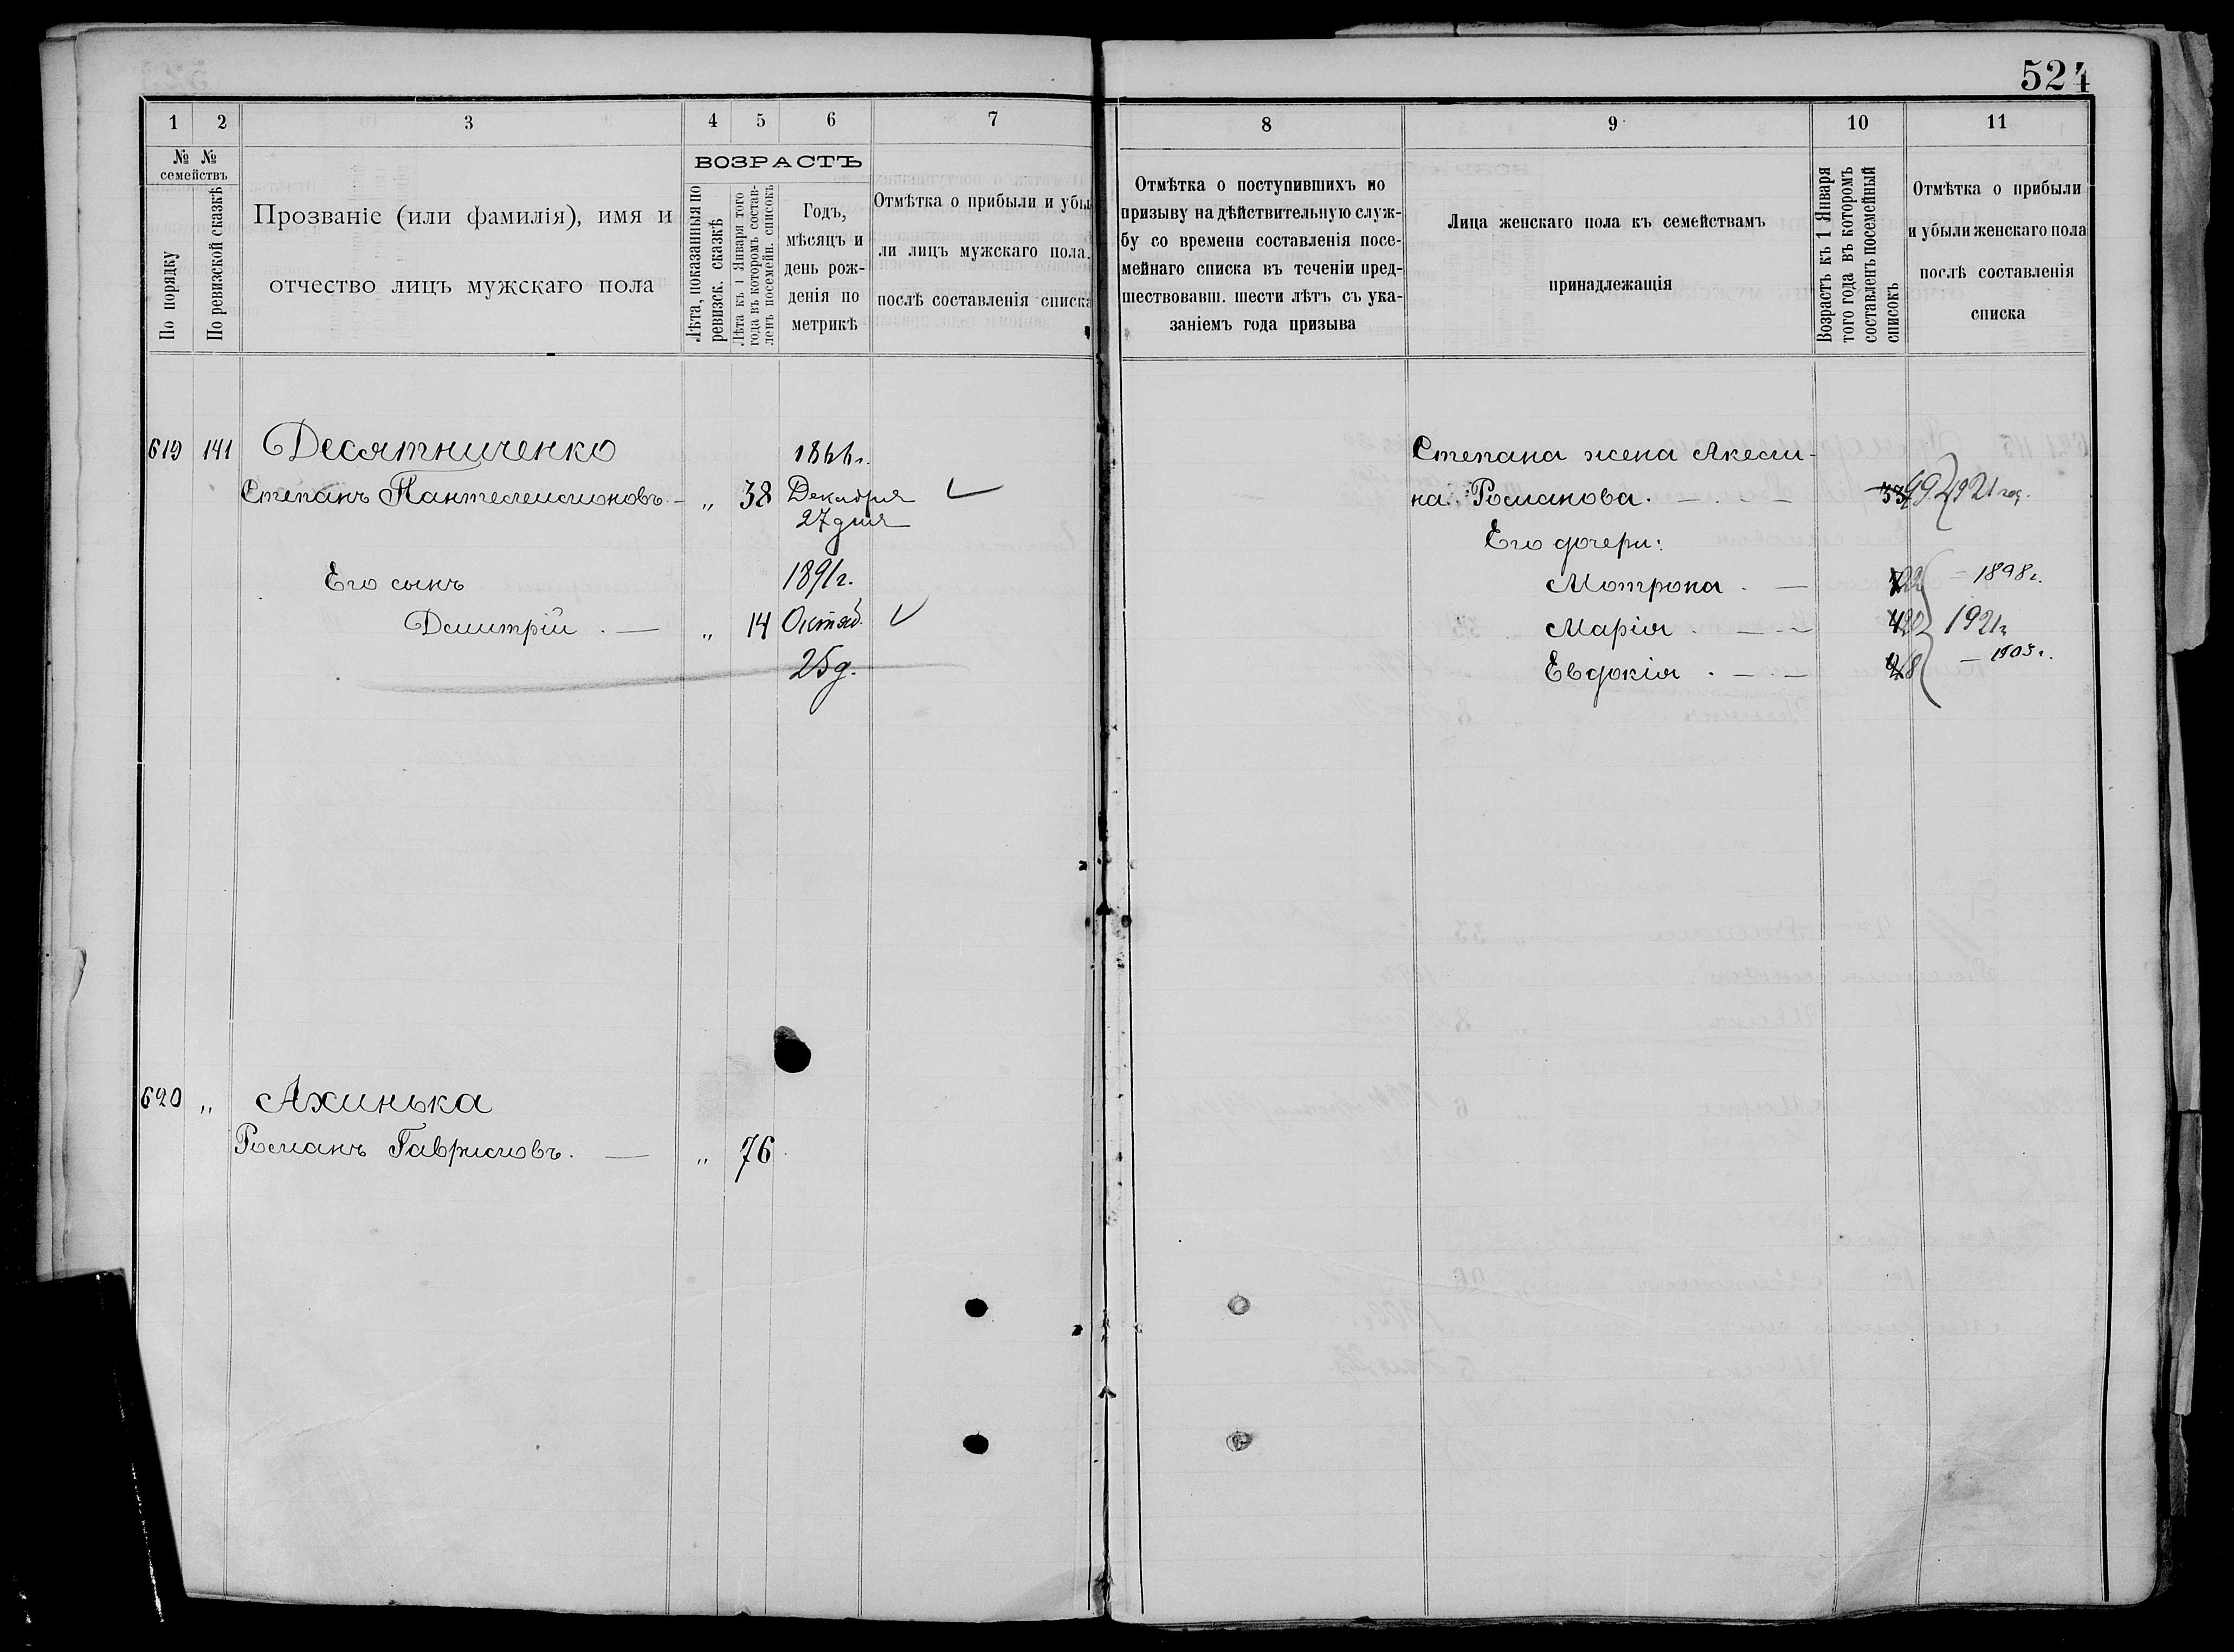 524
1 2 3 4 5 6 7
№ № семействъ
По порядку
По ревизской сказкѣ
Прозваніе (или фамилія), имя и
отчество лицъ мужскаго пола
ВОЗРАСТЪ
Лѣта, показанныя по
ревизск. сказкѣ
Лѣта къ 1 Января того
года въ которомъ состав-
ленъ посемейн. списокъ
Годъ,
мѣсяцъ и
день рож-
денія по
метрикѣ
Отмѣтка о прибыли и убы
ли лицъ мужскаго пола
послѣ составленія списка
619 141 Десятниченко 1866г.
Степанъ Пантелеимоновъ. — „ 38 Декабря
27 дня
Его сынъ 1891г.
Дмитрій . — „ 14 Октяб.
25 д.
620 „ Ахинька
Романъ Гавриловъ. — „ 76
8 9 10 11
Отмѣтка о поступившихъ по
призыву на дѣйствительную служ-
бу со времени составленія посе-
мейнаго списка въ теченіи пред-
шествовавш. шести лѣтъ съ ука-
заніемъ года призыва
Лица женскаго пола къ семействамъ
принадлежащія
Возрастъ къ 1 Января
того года въ которомъ
составленъ посемейный
списокъ
Отмѣтка о прибыли
и убыли женскаго пола
послѣ составленія
списка
Степана жена Акели-
на Романова. — . — 33 49 1921 год.
Его дочери:
Мотрона . — 22 — 1898г.
Марія . — — 1921г
Евдокія . — . — 18 — 1903г.